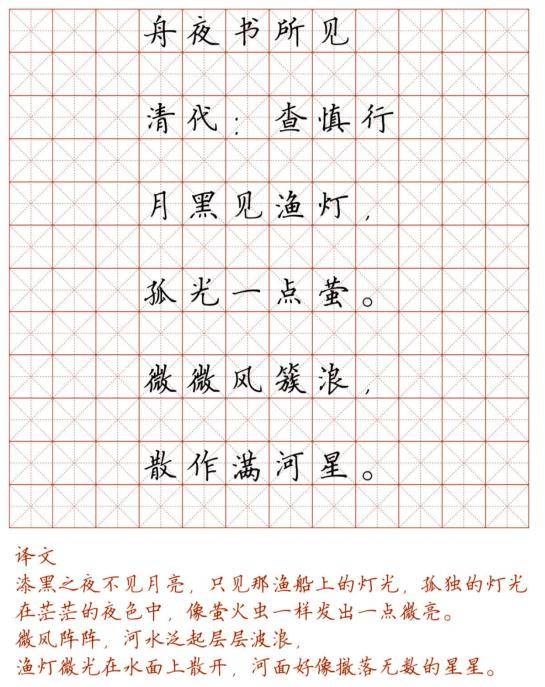 舟夜书所见
清代：查慎行
月黑见渔灯，
孤光一点萤。
微微风簇浪，
散作满河星。
译文
漆黑之夜不见月亮，只见那渔船上的灯光，孤独的灯光
在茫茫的夜色中，像萤火虫一样发出一点微亮。
微风阵阵，河水泛起层层波浪，
渔灯微光在水面上散开，河面好像撒落无数的星星。